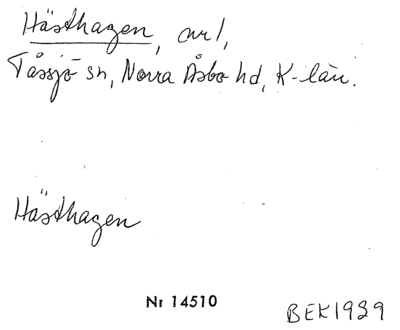 Hästhagen, avl,
Tåssjö sn, Norra Åsbo hd, K-län.
Hästhagen
Nr 14510
BEK1939